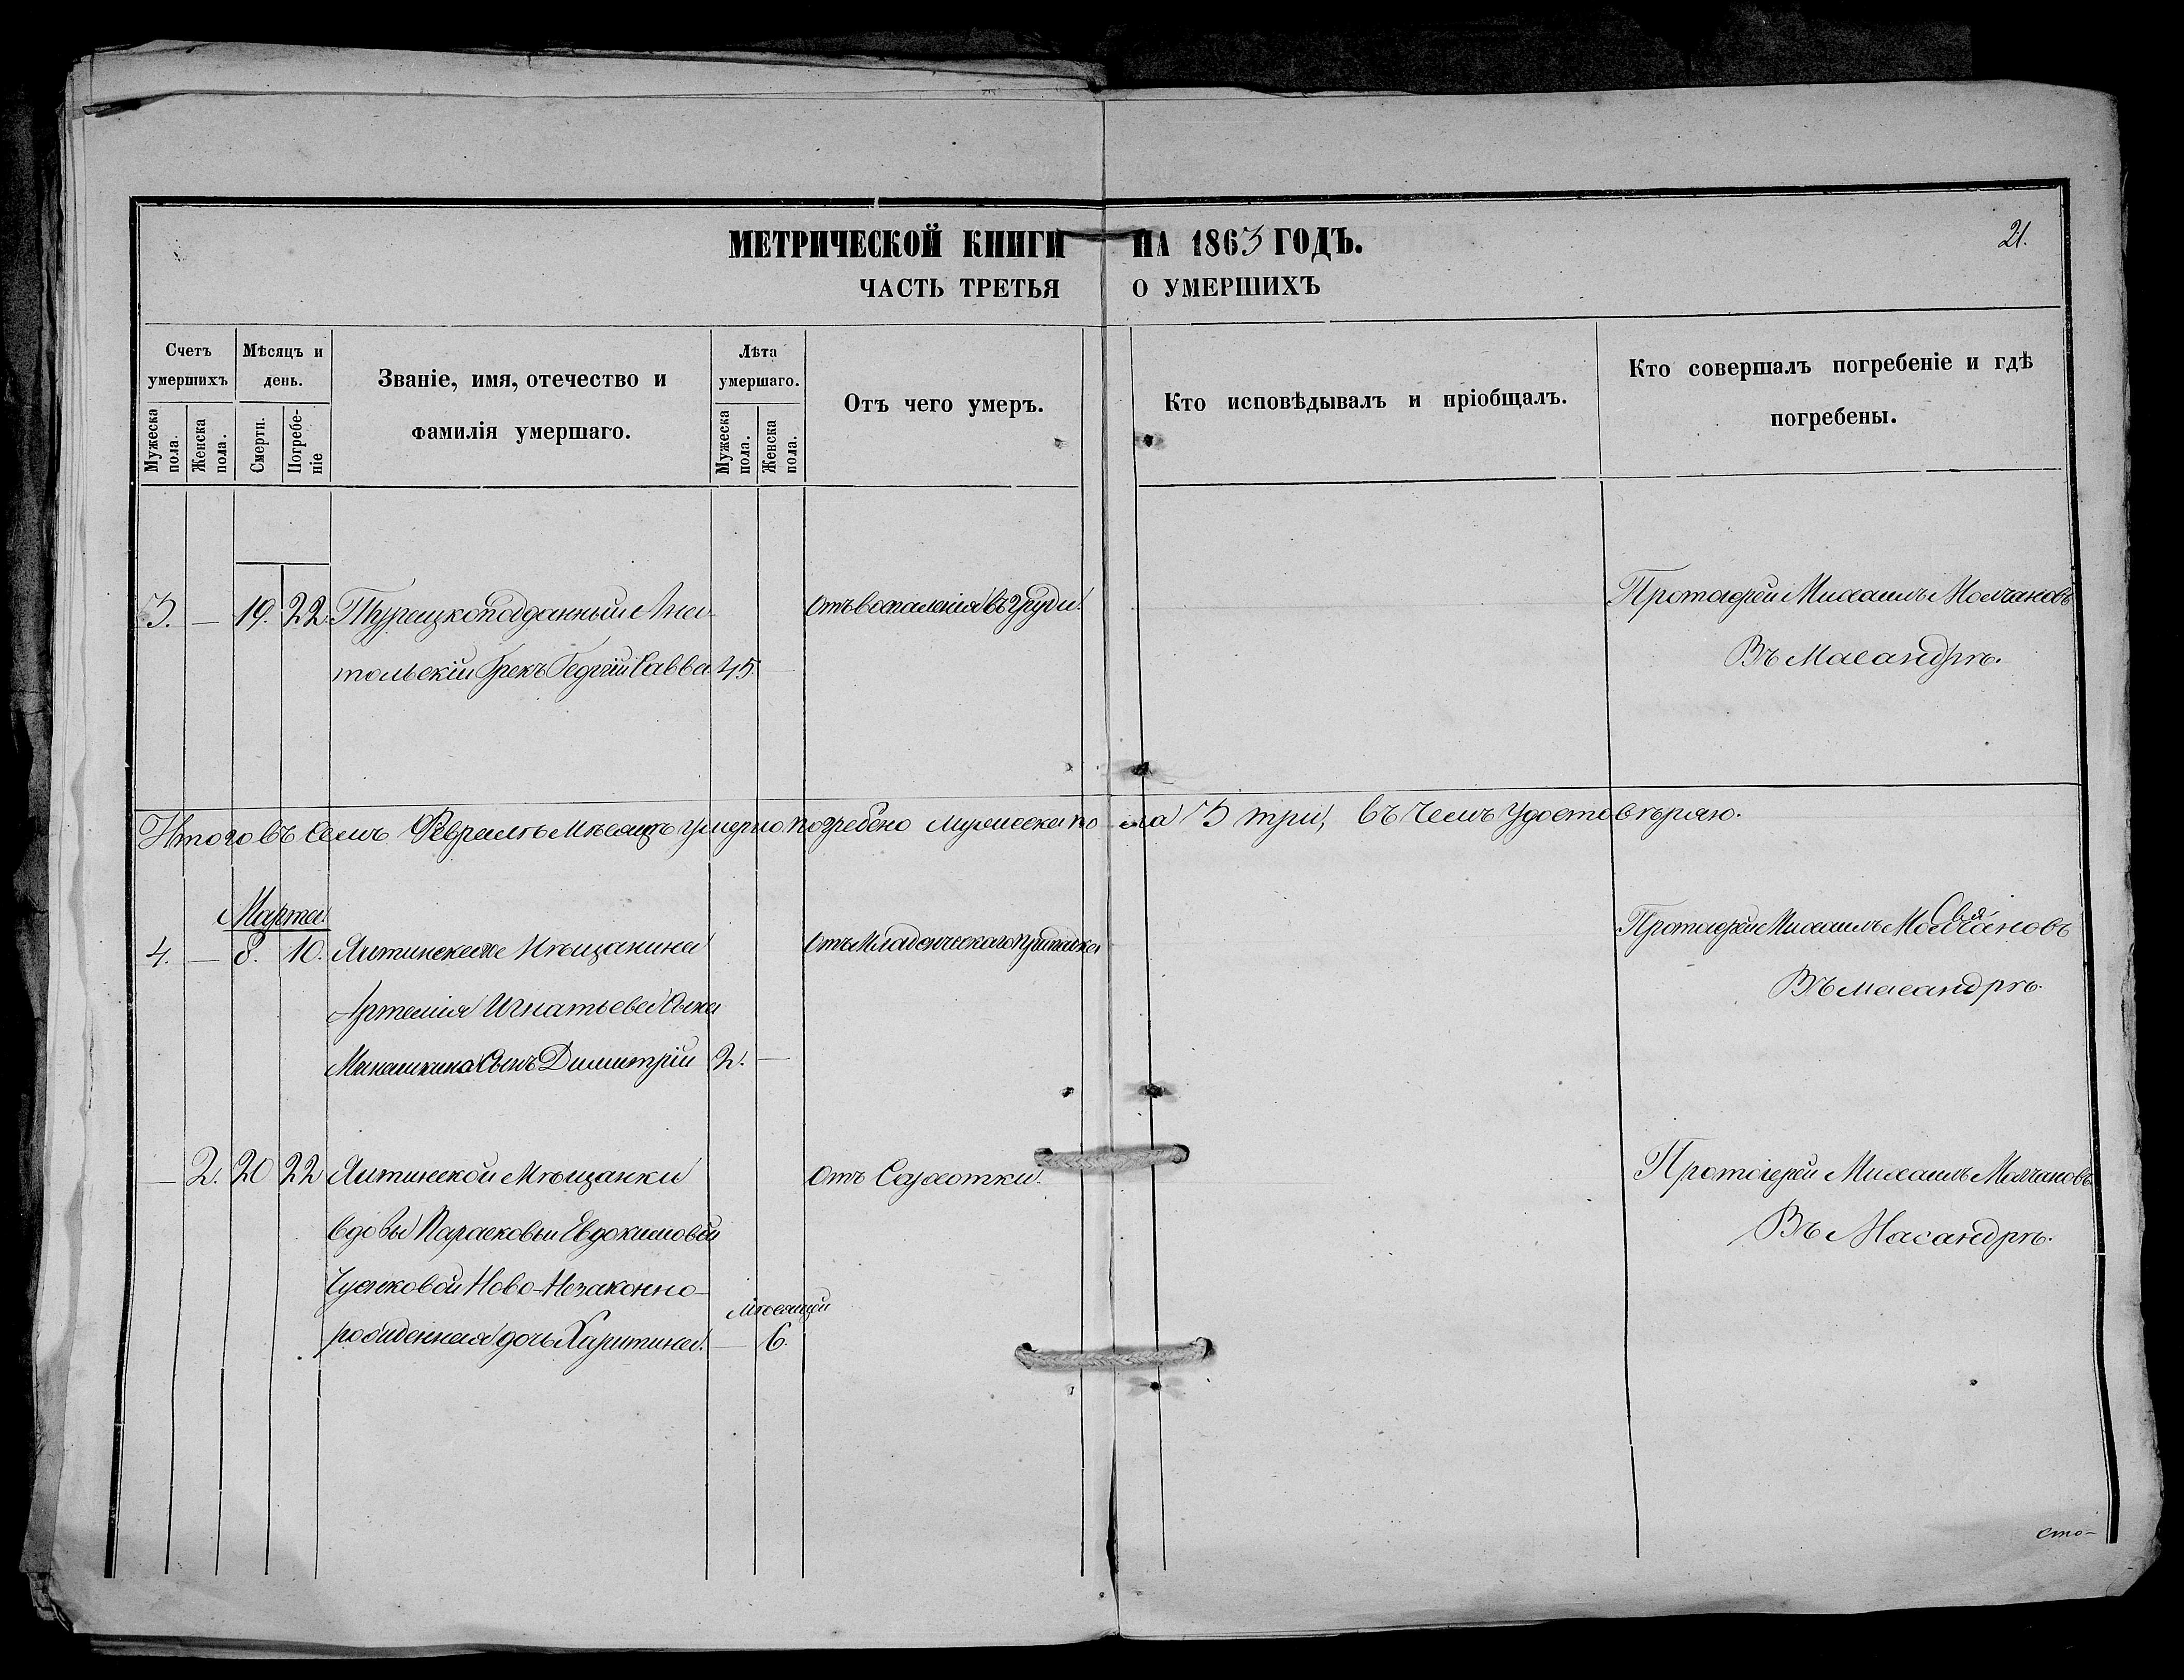 МЕТРИЧЕСКОЙ КНИГИ НА 1863 ГОДЪ.
21.
ЧАСТЬ ТРЕТЬЯ О УМЕРШИХЪ
Счетъ умершихъ
Мужеска пола.
Женска пола.
Мѣсяцъ и день.
Смерти.
Погребеніе
Званіе, имя, отечество и фамилія умершаго.
Лѣта умершаго.
Мужеска пола.
Женска пола.
Отъ чего умеръ.
Кто исповѣдывалъ и пріобщалъ.
Кто совершалъ погребеніе и гдѣ погребены.
3. — 19. 22. Турецкоподданный Ана- Отъ воспаленія въ груди. Протоіерей Михаилъ Молчановъ
тольскій Грекъ Георгій Савва 45. — Въ Масандрѣ.
Итого въ семъ Февралѣ Мѣсяцѣ умерло погребено мужеска пола 3 три, въ чемъ удостовѣряю.
Марта
4. — 8. 10. Ялтинскаго Мѣщанина Отъ Младенческаго припадка Протоіерей Михаилъ Молчановъ
Артемія Игнатьева Сына Въ Масандрѣ.
Сынъ Димитрій 2. —
— 2. 20 22 Ялтинской Мѣщанки Отъ Сухотки. Протоіерей Михаилъ Молчановъ
Вдовы Парасковьи Евдокимовой Въ Масандрѣ.
Ново-Незаконно-
рожденная дочь Харитина. — 6. мѣсяцей
сто-